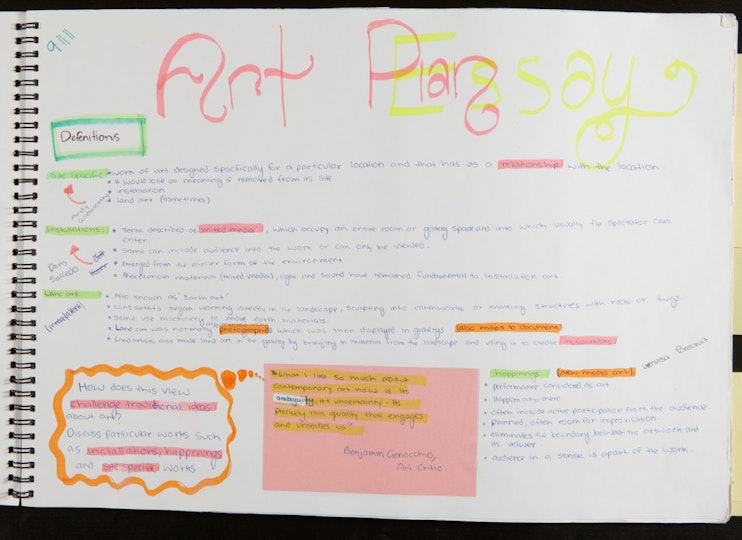 9.11.11
Art Essay Plan
Defenitions
Site Specific:
• Work of art designed specifically for a particular location and that has as a relationship with the location.
• It would lose its meaning if removed from its site.
• installation
• Land art (sometimes)
Andy Goldsworthy
Installations:
• Term described as mixed media, which occupy an entire room or gallery space and into which usually the spectator can
enter.
• Some can include audience into the work or can only be viewed.
• Emerged from the earlier form of the environment
• Miscellaneous materials (mixed media), light and sound have remained fundamental to installation art.
Doris
Salcedo
Land art:
• Also known as 'Earth art'
• Land artists began working directly in the landscape, sculpting into earthworks or making structures with rocks or twigs
• Some use machinery to move earth materials.
• Land art was normally photographed which was then displayed in gallerys (also maps to document)
• Land artists also made land art in the gallery by bringing in material from the landscape and using it to create installations.
How does this view
challenge traditional ideas
about art?
Discuss particular works such
as installations, happenings
and site specific works.
"What I like so much about
contemporary art now is its
ambiguity, its uncertainty. Its
precisly this quality that engages
and unsettles us"
Benjamin Genocchio,
Art Critic.
happenings: (New media art)
Vanessa Beecroft
• performance considered as art
• Happens anywhere
• often include active participation from the audience
• planned, often room for improvisation
• eliminates the boundary between the artwork and
its veiwer.
• audience in a sense is apart of the work.